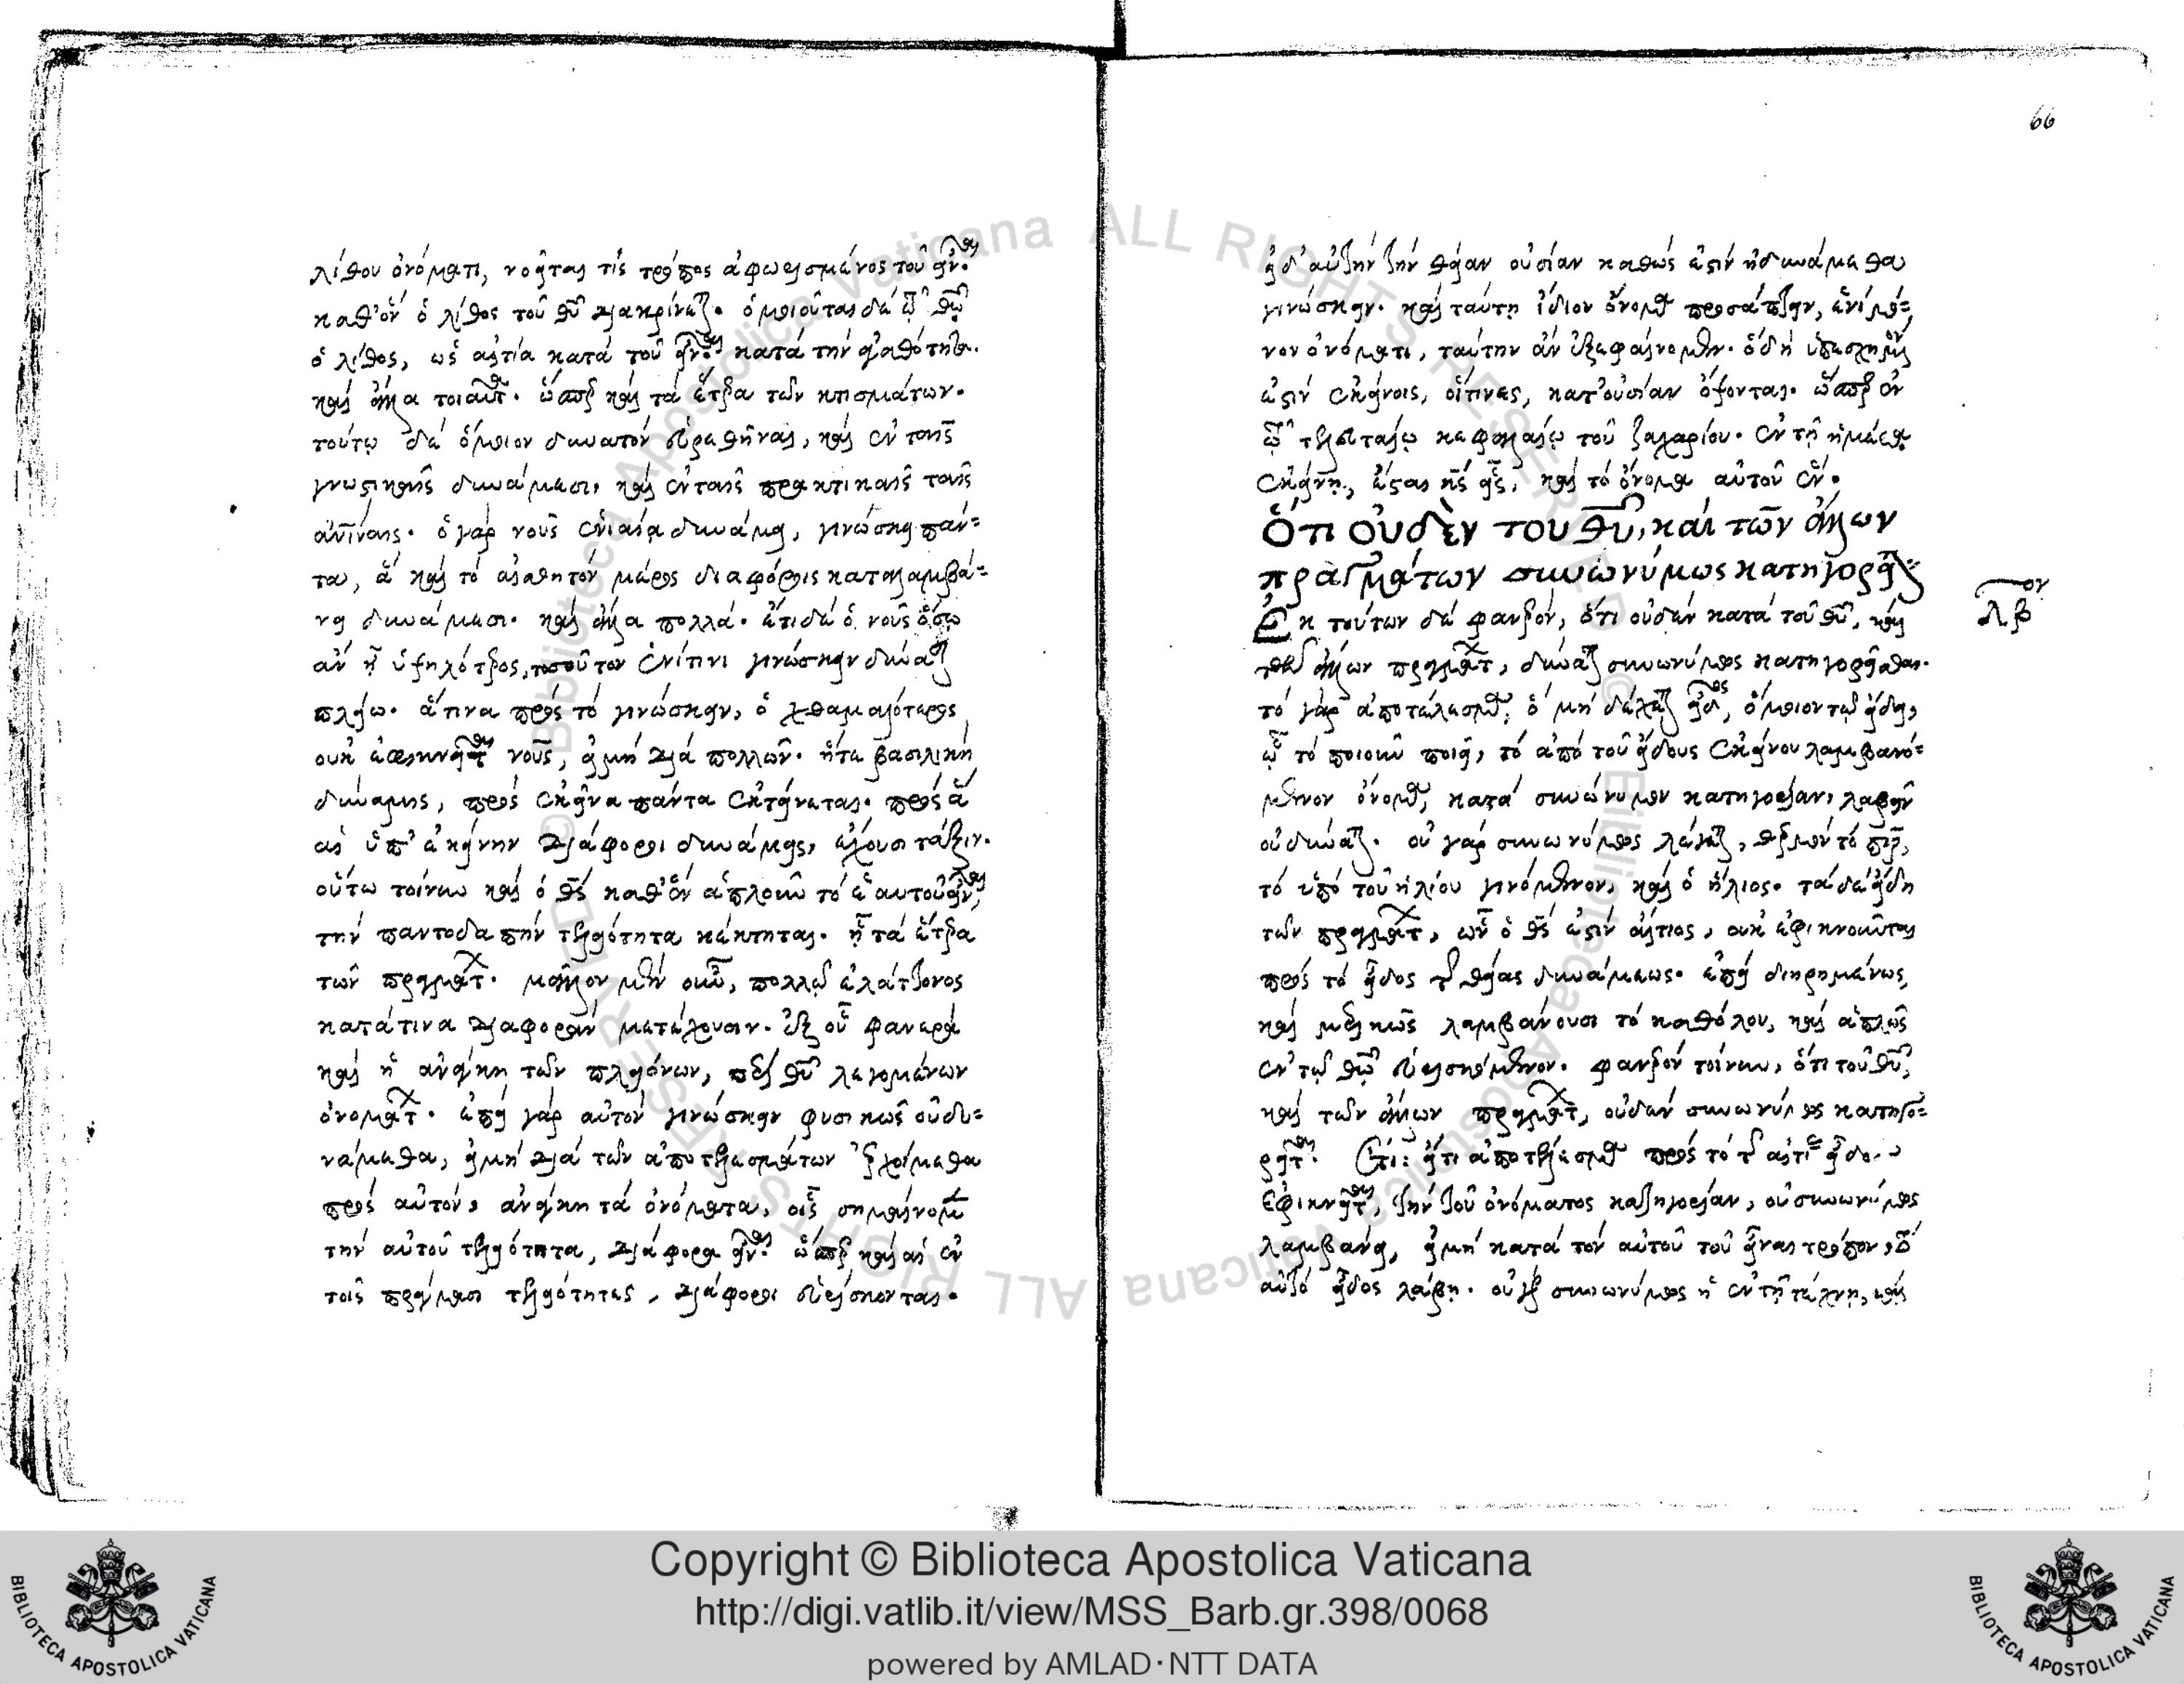 λίθου ὀνόματι, νοεῖται τίς τρόπος ἀφωρισμένος τοῦ εἶν(αι).
καθ' ὃν ὁ λίθος τοῦ θυ διακρίνετ(αι). ὁμοιοῦται δὲ τῶ θῶ
ὁ λίθος, ὡς αἰτία κατὰ τοῦ εἶν(αι) κατὰ τὴν ἀγαθότητα.
καὶ ἄλλα τοιαῦτ(α). ὥσπερ καὶ τὰ ἕτερα τῶν κτισμάτων.
τούτῳ δὲ ὅμοιον δυνατὸν εὑρεθῆναι, καὶ ἐν ταῖς
γνωστικαῖς δυνάμεσι, καὶ ἐν ταῖς πρακτικαῖς ταῖς
ἀνίναις. ὁ γὰρ νοῦς ἑνιαίᾳ δυνάμει, γινώσκει πάν=
τα, ἃ καὶ τὸ αἰσθητὸν μέρος διαφόροις καταλαμβά=
νει δυνάμεσι. καὶ ἄλλα πολλά. ἔτι δὲ ὁ νοῦς ὅσῳ
ἂν ᾖ ὑψηλότερος, τοσοῦτον ἑνί τινι γινώσκειν δύνατ(αι)
πλείω. ἅτινα πρὸς τὸ γινώσκειν, ὁ χθαμαλώτερος
οὐκ ἐφικνεῖτ(αι) νοῦς, εἰ μὴ διὰ πολλῶν. ἥτε βασιλικὴ
δύναμις, πρὸς ἐκεῖνα πάντα ἐκτείνεται. πρὸς ἃ
αἱ ὑπ' ἐκείνην διάφοροι δυνάμεις, ἔχουσι τάξιν.
οὕτω τοίνυν καὶ ὁ θς καθ' ὃν ἁπλοῦν τὸ ἑαυτοῦ εἶν(αι),
τὴν παντοδαπὴν τελειότητα κέκτηται. ᾗ τὰ ἕτερα
τῶν πραγμάτ(ων). μᾶλλον μὲν οὖν, πολλῷ ἐλάττονος
κατά τινα διαφορὰν μετέχουσιν. ἐξ οὗ φανερὰ
καὶ ἡ ἀνάγκη τῶν πλειόνων, περὶ θυ λεγομένων
ὀνομάτ(ων). ἐπεὶ γὰρ αὐτὸν γινώσκειν φυσικῶς οὐ δυ=
νάμεθα, εἰ μὴ διὰ τῶν ἀποτελεσμάτων ἐρχοίμεθα
πρὸς αὐτόν, ἀνάγκη τὰ ὀνόματα, οἷς σημαίνομεν
τὴν αὐτοῦ τελειότητα, διάφορα εἶν(αι). ὥσπερ καὶ αἱ ἐν
τοῖς πράγμασι τελειότητες, διάφοροι εὑρίσκονται.
66
εἰ δ' αὐτὴν τὴν θείαν οὐσίαν καθώς ἐστιν ἠδυνάμεθα
γινώσκειν. καὶ ταύτῃ ἴδιον ὄνομα προσάπτειν, ἑνὶ μό=
νον ὀνόματι, ταύτην ἂν ἐξεφαίνομεν. ὃ δὴ ὑπεσχημέν(ον)
ἐστὶν ἐκείνοις, οἵτινες, κατ' οὐσίαν ὄψονται. ὥσπερ ἐν
τῶ τελευταίῳ κεφαλαίῳ τοῦ ζαχαρίου. ἐν τῇ ἡμέρᾳ
ἐκείνῃ, ἔσται κς εἷς, καὶ τὸ ὄνομα αὐτοῦ ἕν.
Ὅτι οὐδὲν τοῦ θυ, καὶ τῶν ἄλλων
πραγμάτων συνωνύμως κατηγορεῖτ(αι)
λβον
Ἐκ τούτων δὲ φανερόν, ὅτι οὐδὲν κατὰ τοῦ θυ, καὶ
τῶν ἄλλων πραγμάτ(ων), δύνατ(αι) συνωνύμως κατηγορεῖσθαι.
τὸ γὰρ ἀποτέλεσμα, ὃ μὴ δέχετ(αι) εἶδος, ὅμοιον τῷ εἴδει,
ᾧ τὸ ποιοῦν ποιεῖ, τὸ ἀπὸ τοῦ εἴδους ἐκείνου λαμβανό=
μενον ὄνομα, κατὰ συνώνυμον κατηγορίαν, λαβεῖν
οὐ δύνατ(αι). οὐ γὰρ συνωνύμως λέγετ(αι), θερμὸν τὸ πῦρ,
τὸ ὑπὸ τοῦ ἡλίου γινόμενον, καὶ ὁ ἥλιος. τὰ δὲ εἴδη
τῶν πραγμάτ(ων), ὧν ὁ θς ἐστὶν αἴτιος, οὐκ ἐφικνοῦνται
πρὸς τὸ εἶδος τῆς θείας δυνάμεως. ἐπεὶ διῃρημένως,
καὶ μερικῶς λαμβάνουσι τὸ καθόλου, καὶ ἁπλῶς
ἐν τῷ θῶ εὑρισκόμενον. φανερὸν τοίνυν, ὅτι τοῦ θυ,
καὶ τῶν ἄλλων πραγμάτ(ων), οὐδὲν συνωνύμως κατηγο=
ρεῖτ(αι). Ἔτι: εἴ τι ἀποτέλεσμα πρὸς τὸ τῆς αἰτί(ας) εἶδος
ἐφικνεῖτ(αι), τὴν τοῦ ὀνόματος κατηγορίαν, οὐ συνωνύμως
λαμβάνει, εἰ μὴ κατὰ τὸν αὐτὸν τοῦ εἶναι τρόπον, τὸ
αὐτὸ εἶδος λάβῃ. οὐ γὰρ συνωνύμως ἡ ἐν τῇ τέχνῃ, καὶ
Copyright © Biblioteca Apostolica Vaticana
http://digi.vatlib.it/view/MSS_Barb.gr.398/0068
powered by AMLAD·NTT DATA
BIBLIOTECA APOSTOLICA VATICANA
BIBLIOTECA APOSTOLICA VATICANA